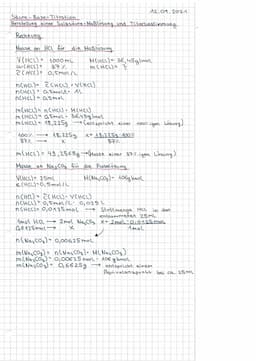 12.09.2021
Säure-Base-Titration
Herstellung einer Salzsäure-Maßlösung und Titerbestimmung
Rechnung
Masse an HCl für die Maßlösung
V(HCl) = 1000mL M(HCl) = 36,45g/mol
ω(HCl) = 37% m(HCl) = ?
c̃(HCl) = 0,5mol/L
n(HCl) = c̃(HCl) · V(HCl)
n(HCl) = 0,5mol/L · 1L
n(HCl) = 0,5mol
m(HCl) = n(HCl) · M(HCl)
m(HCl) = 0,5mol · 36,45g/mol
m(HCl) = 18,225g → (entspricht einer 100%igen Lösung)
100% → 18,225g x = 18,225g·100%
37% → x 37%
m(HCl) = 49,2568g → (Masse einer 37%igen Lösung)
Masse an Na₂CO₃ für die Einwaage
V(HCl) = 25mL M(Na₂CO₃) = 106g/mol
c̃(HCl) = 0,5mol/L
n(HCl) = c̃(HCl) · V(HCl)
n(HCl) = 0,5mol/L · 0,025L
n(HCl) = 0,0125mol → Stoffmenge HCl in den
entnommenen 25mL
0,0125mol → x 1mol
n(Na₂CO₃) = 0,00625mol
m(Na₂CO₃) = n(Na₂CO₃) · M(Na₂CO₃)
m(Na₂CO₃) = 0,00625mol · 106g/mol
m(Na₂CO₃) = 0,6625g → entspricht einem
Äquivalenzpunkt bei ca. 25mL